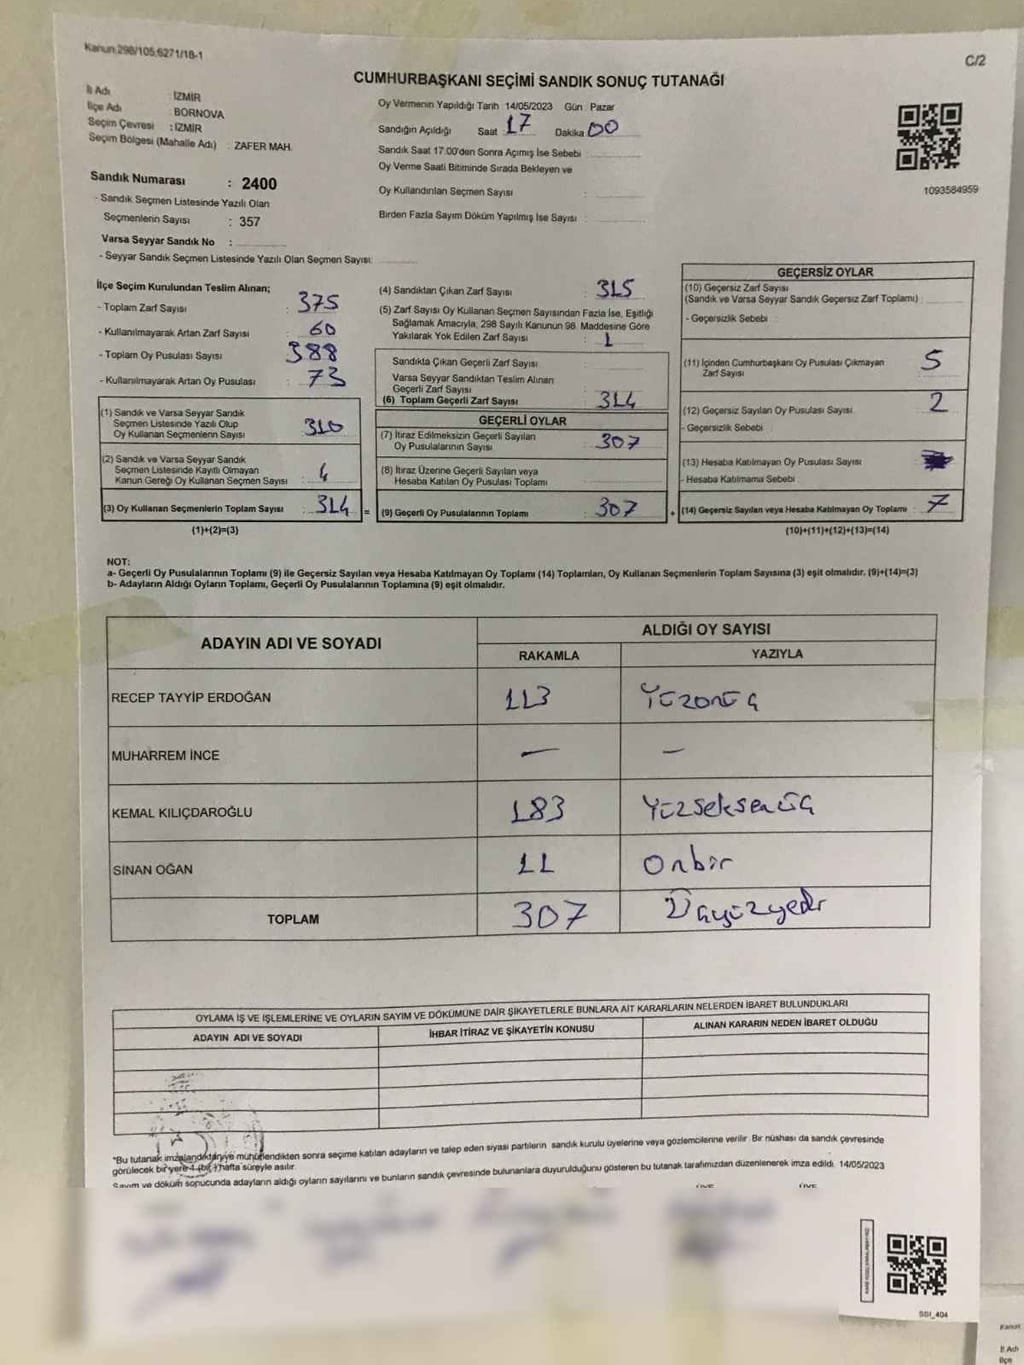 Kanun:298/105;6271/18-1
C/2
CUMHURBAŞKANI SEÇİMİ SANDIK SONUÇ TUTANAĞI
İl Adı : İZMİR
İlçe Adı : BORNOVA
Seçim Çevresi : İZMİR
Seçim Bölgesi (Mahalle Adı) : ZAFER MAH.
Sandık Numarası : 2400
- Sandık Seçmen Listesinde Yazılı Olan
Seçmenlerin Sayısı : 357
Varsa Seyyar Sandık No :
- Seyyar Sandık Seçmen Listesinde Yazılı Olan Seçmen Sayısı:
Oy Vermenin Yapıldığı Tarih 14/05/2023 Gün Pazar
Sandığın Açıldığı Saat : 17 Dakika 00
Sandık Saat 17:00'den Sonra Açımış İse Sebebi :
Oy Verme Saati Bitiminde Sırada Bekleyen ve
Oy Kullandırılan Seçmen Sayısı :
Birden Fazla Sayım Döküm Yapılmış İse Sayısı :
1093584959
İlçe Seçim Kurulundan Teslim Alınan;
- Toplam Zarf Sayısı : 375
- Kullanılmayarak Artan Zarf Sayısı : 60
- Toplam Oy Pusulası Sayısı : 388
- Kullanılmayarak Artan Oy Pusulası : 73
(1) Sandık ve Varsa Seyyar Sandık
Seçmen Listesinde Yazılı Olup
Oy Kullanan Seçmenlerin Sayısı : 310
(2) Sandık ve Varsa Seyyar Sandık
Seçmen Listesinde Kayıtlı Olmayan
Kanun Gereği Oy Kullanan Seçmen Sayısı : 4
(3) Oy Kullanan Seçmenlerin Toplam Sayısı : 314 =
(1)+(2)=(3)
(4) Sandıktan Çıkan Zarf Sayısı : 315
(5) Zarf Sayısı Oy Kullanan Seçmen Sayısından Fazla İse, Eşitliği
Sağlamak Amacıyla, 298 Sayılı Kanunun 98. Maddesine Göre
Yakılarak Yok Edilen Zarf Sayısı : 1
Sandıkta Çıkan Geçerli Zarf Sayısı :
Varsa Seyyar Sandıktan Teslim Alınan
Geçerli Zarf Sayısı :
(6) Toplam Geçerli Zarf Sayısı : 314
GEÇERLİ OYLAR
(7) İtiraz Edilmeksizin Geçerli Sayılan
Oy Pusulalarının Sayısı : 307
(8) İtiraz Üzerine Geçerli Sayılan veya
Hesaba Katılan Oy Pusulası Toplamı :
(9) Geçerli Oy Pusulalarının Toplamı : 307 +
GEÇERSİZ OYLAR
(10) Geçersiz Zarf Sayısı
(Sandık ve Varsa Seyyar Sandık Geçersiz Zarf Toplamı) :
- Geçersizlik Sebebi :
(11) İçinden Cumhurbaşkanı Oy Pusulası Çıkmayan
Zarf Sayısı : 5
(12) Geçersiz Sayılan Oy Pusulası Sayısı : 2
- Geçersizlik Sebebi :
(13) Hesaba Katılmayan Oy Pusulası Sayısı :
- Hesaba Katılmama Sebebi :
(14) Geçersiz Sayılan veya Hesaba Katılmayan Oy Toplamı : 7
(10)+(11)+(12)+(13)=(14)
NOT:
a- Geçerli Oy Pusulalarının Toplamı (9) ile Geçersiz Sayılan veya Hesaba Katılmayan Oy Toplamı (14) Toplamları, Oy Kullanan Seçmenlerin Toplam Sayısına (3) eşit olmalıdır. (9)+(14)=(3)
b- Adayların Aldığı Oyların Toplamı, Geçerli Oy Pusulalarının Toplamına (9) eşit olmalıdır.
ADAYIN ADI VE SOYADI
ALDIĞI OY SAYISI
RAKAMLA YAZIYLA
RECEP TAYYİP ERDOĞAN 113 Yüzonüç
MUHARREM İNCE — —
KEMAL KILIÇDAROĞLU 183 Yüzseksenüç
SİNAN OĞAN 11 Onbir
TOPLAM 307 Üçyüzyedi
OYLAMA İŞ VE İŞLEMLERİNE VE OYLARIN SAYIM VE DÖKÜMÜNE DAİR ŞİKAYETLERLE BUNLARA AİT KARARLARIN NELERDEN İBARET BULUNDUKLARI
ADAYIN ADI VE SOYADI İHBAR İTİRAZ VE ŞİKAYETİN KONUSU ALINAN KARARIN NEDEN İBARET OLDUĞU
*Bu tutanak imzalandıktan ve mühürlendikten sonra seçime katılan adayların ve talep eden siyasi partilerin sandık kurulu üyelerine veya gözlemcilerine verilir. Bir nüshası da sandık çevresinde
görülecek bir yere 1 (bir) hafta süreyle asılır.
Sayım ve döküm sonucunda adayların aldığı oyların sayılarını ve bunların sandık çevresinde bulunanlara duyurulduğunu gösteren bu tutanak tarafımızdan düzenlenerek imza edildi. 14/05/2023
ÜYE ÜYE
SSI_404
Kanun
İl Adı
İlçe